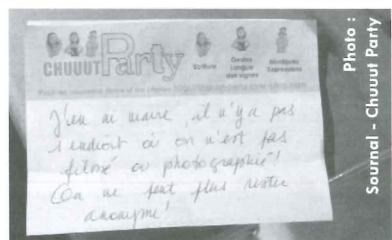 CHUUUT Party
Ecriture
Gestes
Langue
des signes
Mimiques
Expressions
J'en ai marre, il n'y a pas
1 endroit où on n'est pas
filmé ou photographié !
On ne peut plus rester
anonyme !
Photo :
Sournal - Chuuut Party